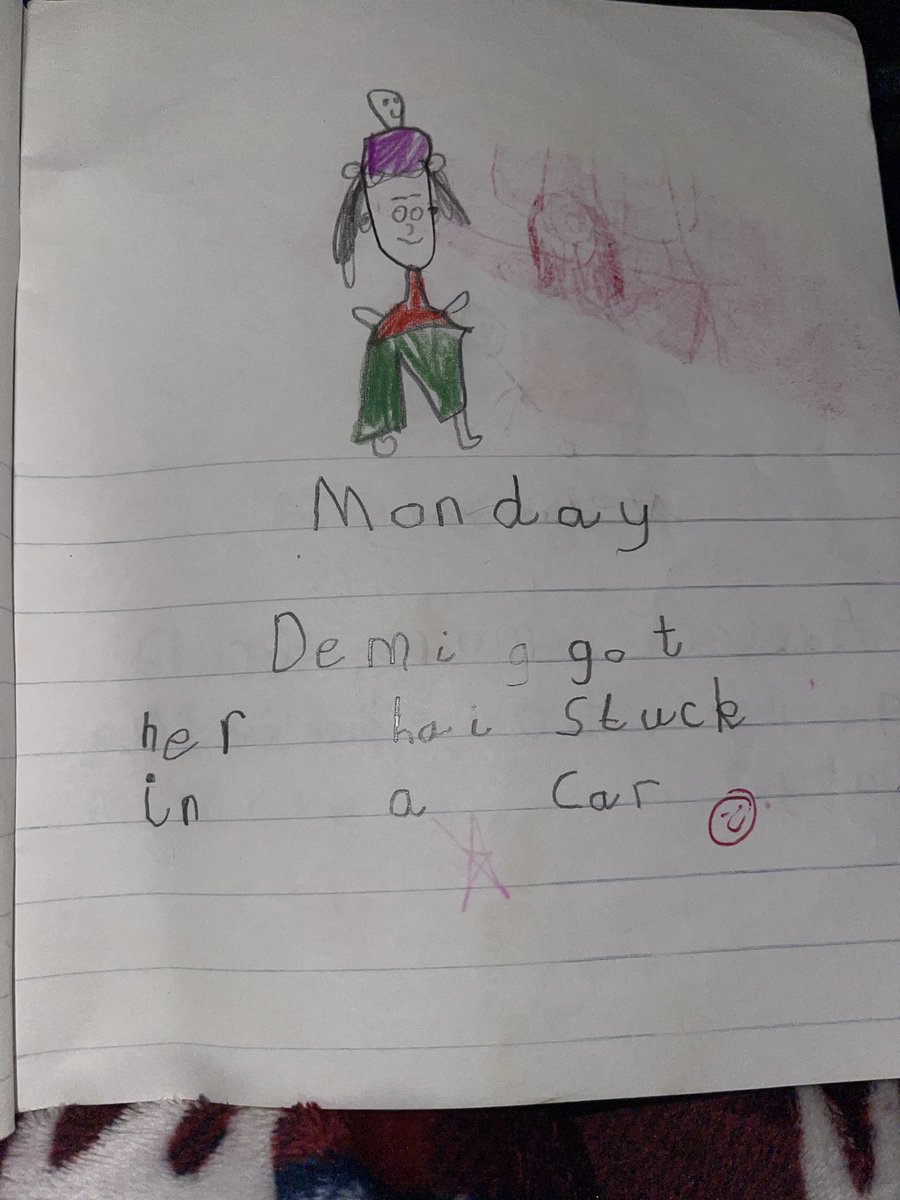 Monday
Demi g got
her hai Stuck
in a Car